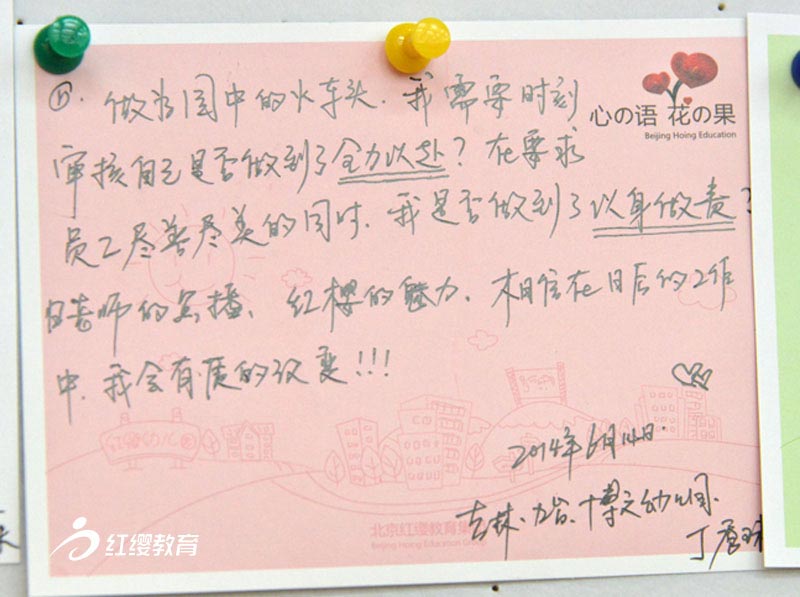 ⑪. 做为园中的火车头. 我需要时刻
审核自己是否做到了全力以赴？在要求
员工尽善尽美的同时. 我是否做到了以身做责？
老师的点播、红樱的魅力. 相信在日后的工作
中. 我会有质的改变!!!
2014年6月14日.
吉林·九台·博文幼儿园.
丁
心の语 花の果
Beijing Hoing Education
红缨幼儿园
北京红缨教育集
Beijing Hoing Education Group
红缨教育